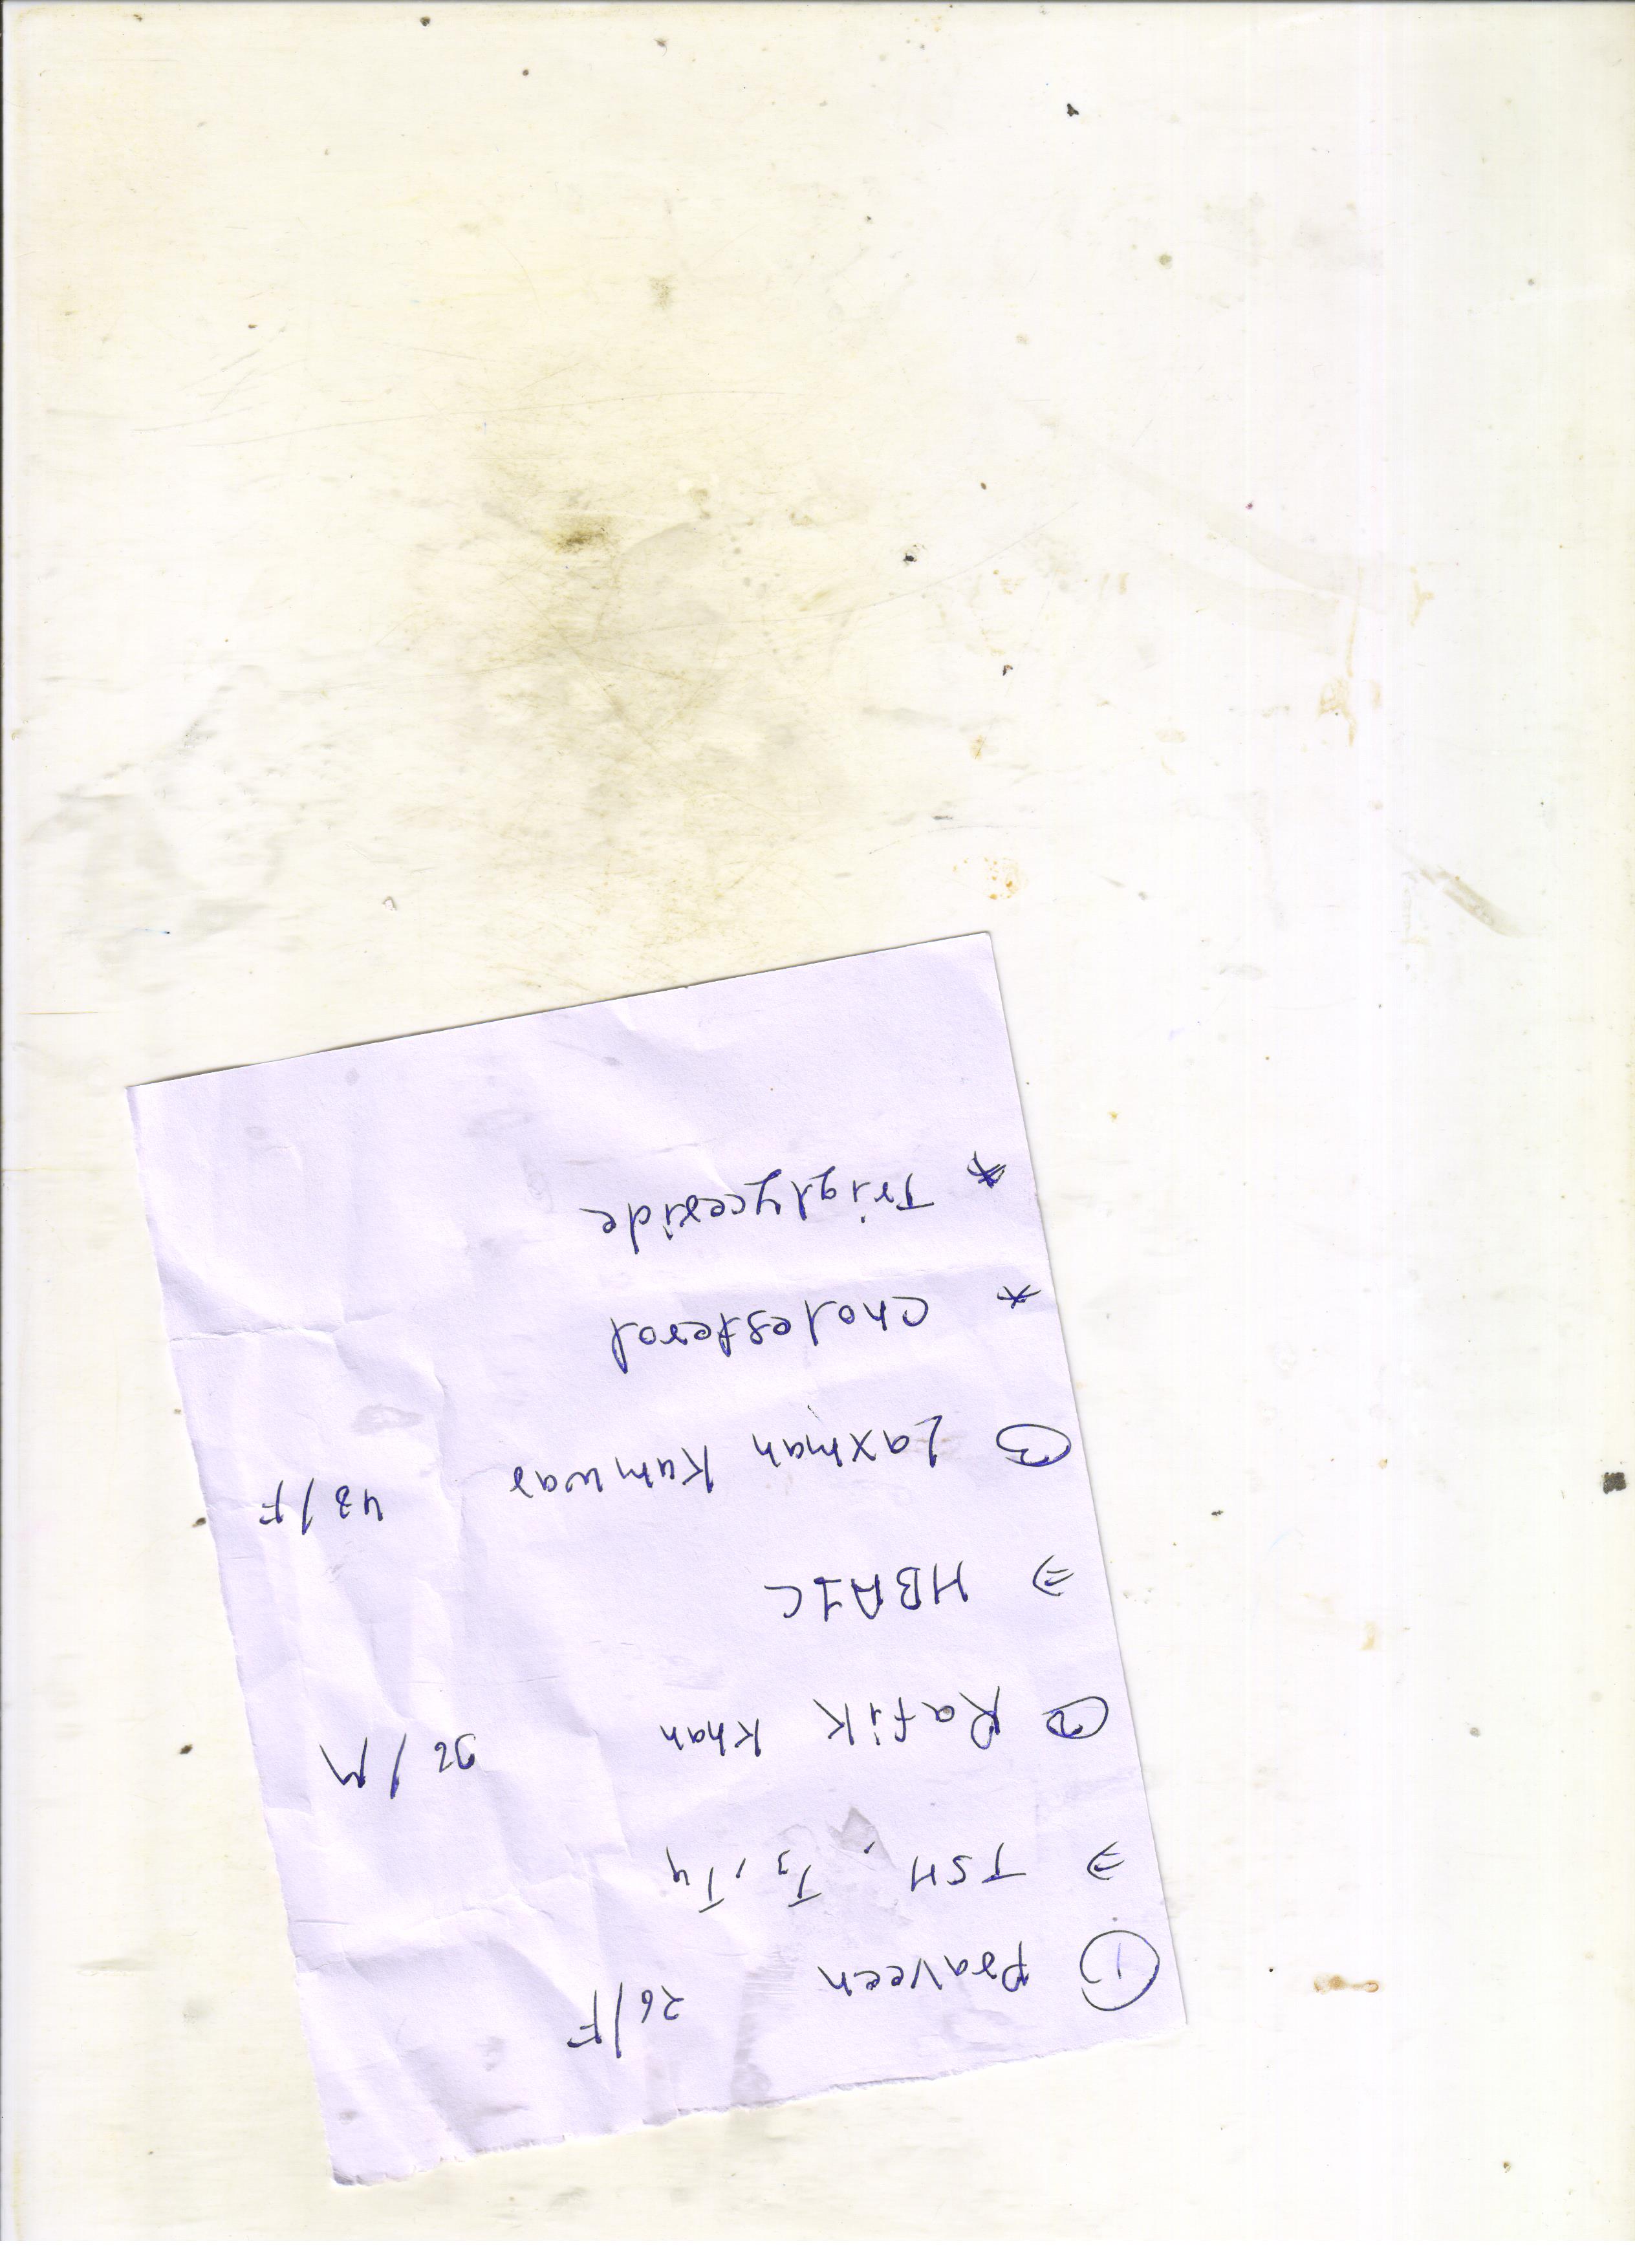 ① Praveen 26/F
⇒ TSH, T3, T4
② Rafik Khan
⇒ HBA1C
③ Laxman Kanwar 48/F
* Cholesterol
* Triglyceride